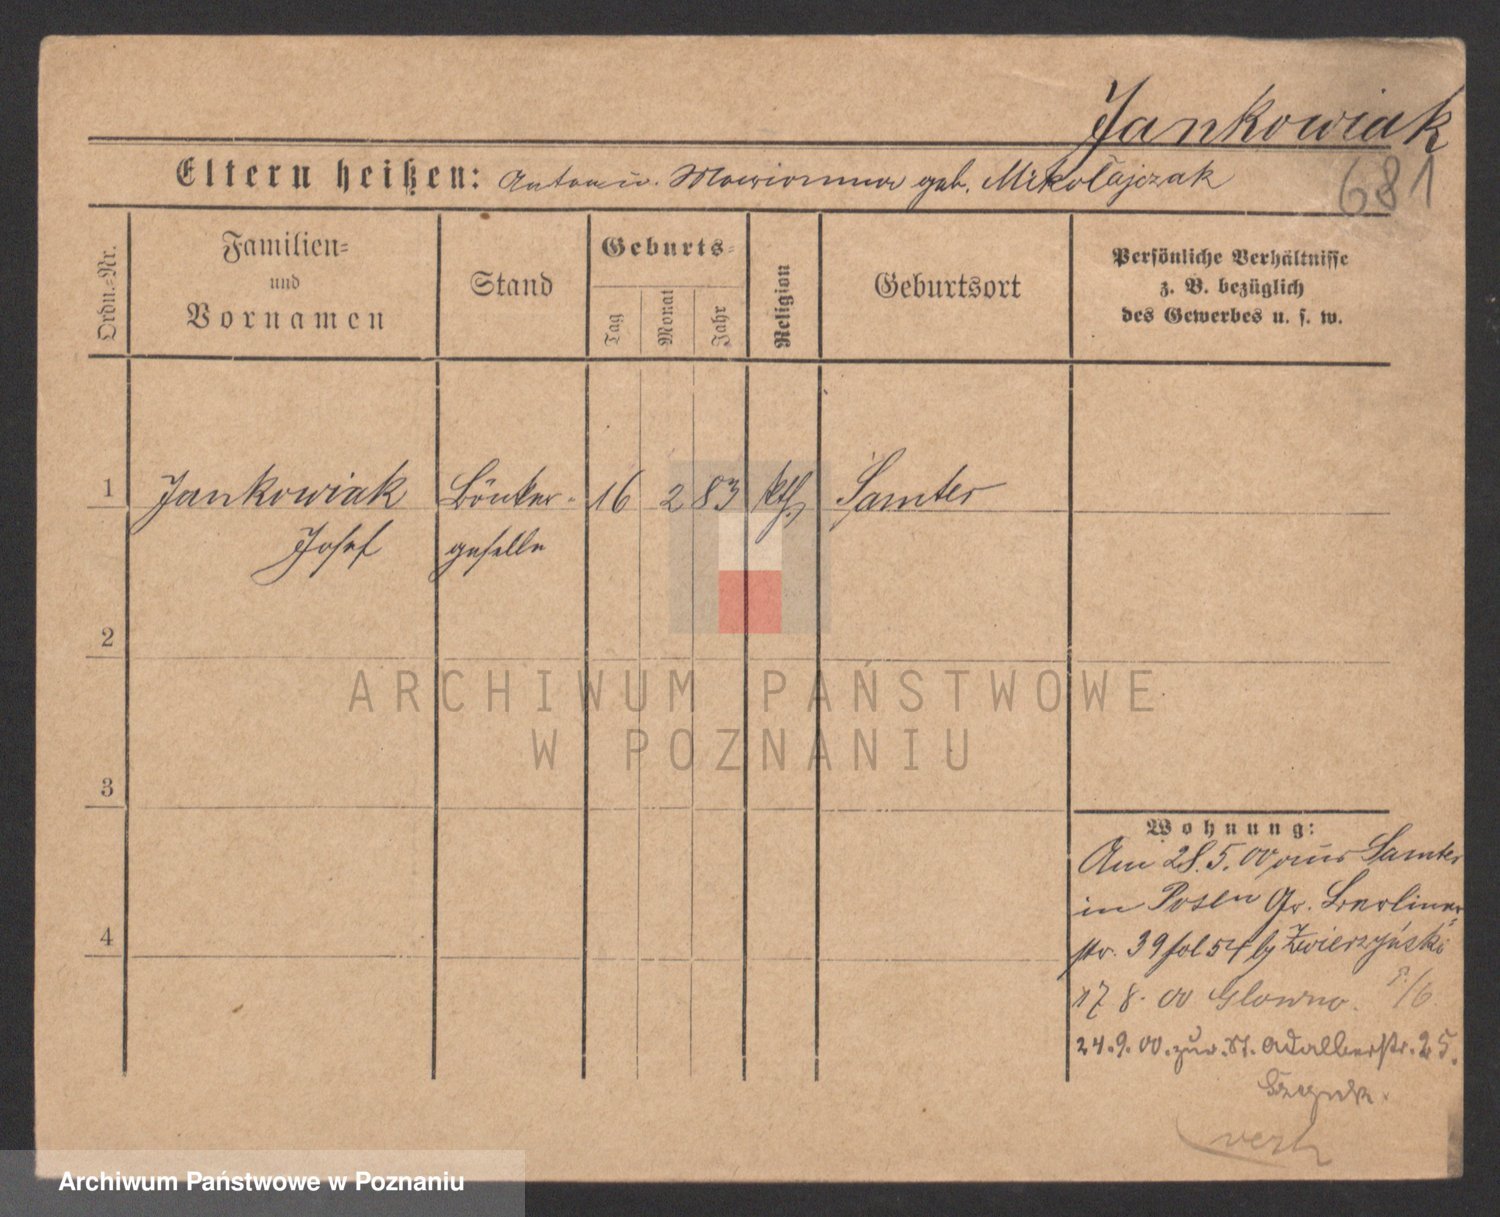 Jankowiak
681
Eltern heißen: Anton u. Marianna geb. Mikołajczak
Ordn.-Nr.
Familien-
und
Vornamen
Stand
Geburts-
Tag
Monat
Jahr
Religion
Geburtsort
Persönliche Verhältnisse
z. B. bezüglich
des Gewerbes u. s. w.
1 Jankowiak Böttcher- 16 2 83 kth. Samter
Josef geselle
2
3
4
ARCHIWUM PAŃSTWOWE
W POZNANIU
Wohnung:
Am 28.5.00 aus Samter
in Posen Gr. Berliner-
str. 39 fol 54 by Zwierzyński
17 8. 00 Glowno.
24.9.00. zur. St. Adalbertstr. 25.
verz
Archiwum Państwowe w Poznaniu